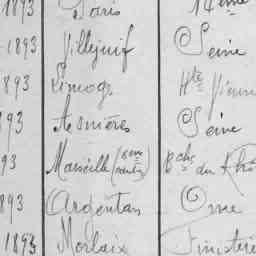 1893 Paris 14ème
1893 Villejuif Seine
1893 Limoges Hte Vienne
1893 Asnières Seine
1893 Marseille (6em Bches du Rhô
1893 Argentan Orne
1893 Morlaix Finistère